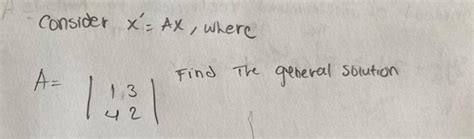 Consider x' = Ax, where
A = | 1 3 | Find The general solution
| 4 2 |